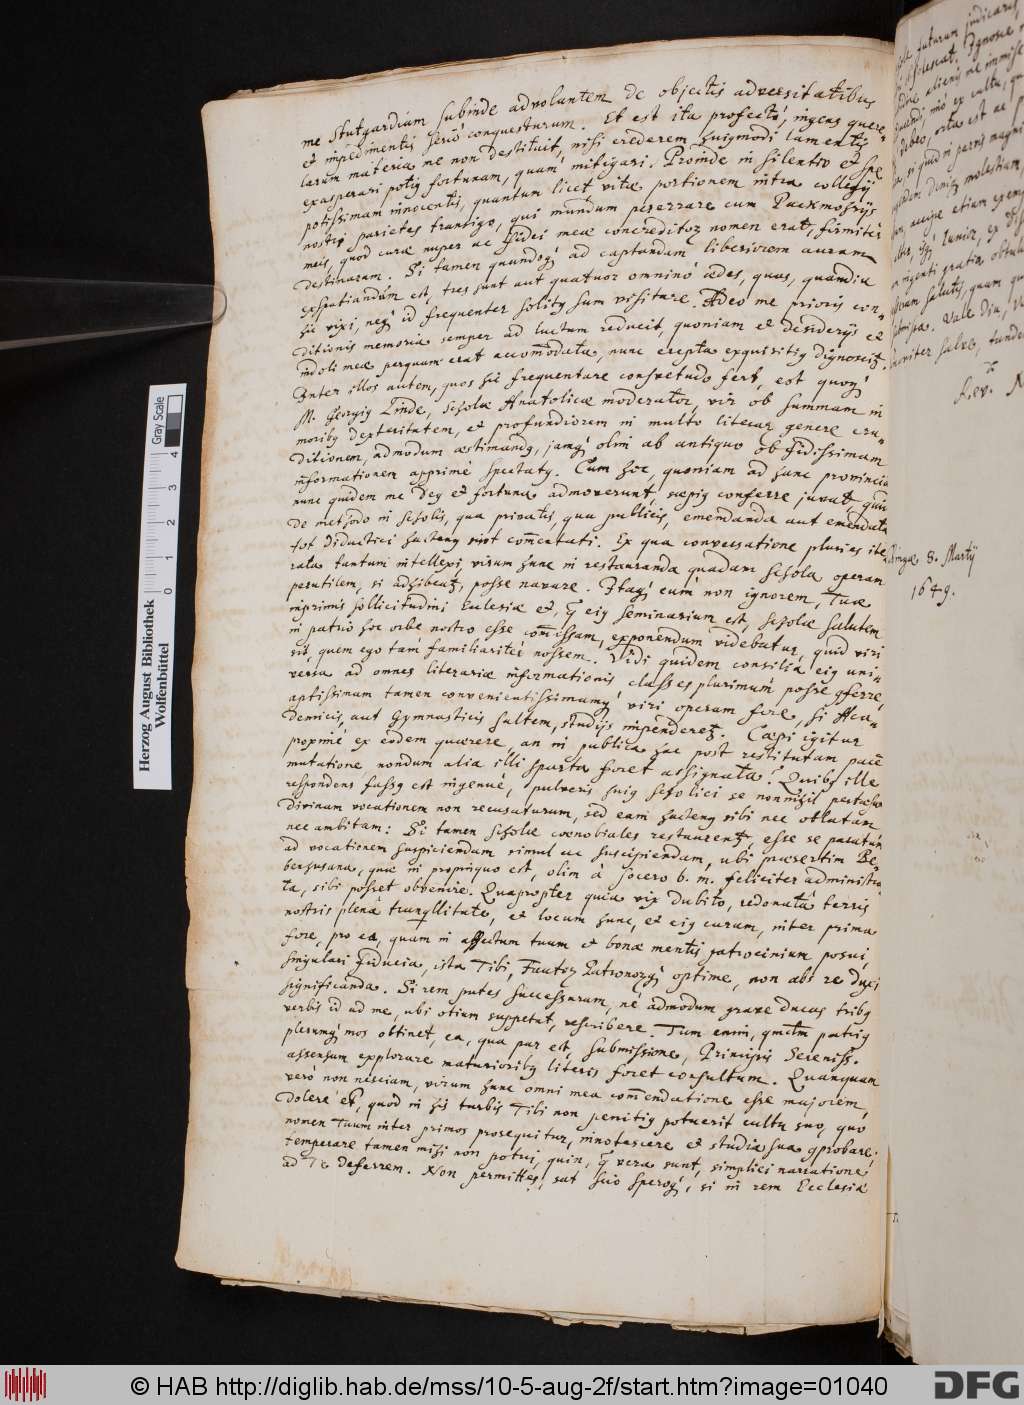 me Stutgardiam subinde advolantem de objectis adversitatibus
et impedimentis serio conquesturum. Et est ita profectò, ingens quere-
larum materia me non destituit, nisi crederem hujusmodi lamentis
exasperari potiꝰ fortunam, quam mitigari. Proinde in silentio et spe
potissimam innocentis, quantum licet vitæ portionem intra collegij
nostri parietes transigo, qui mundum pererrare cum
meis, quod curæ nuper ac fidei meæ concreditoꝝ nomen erat, firmiter
destinaram. Si tamen quandoqꝫ ad captandam liberiorem auram
exspatiandum est, tres sunt aut quatuor omninò ædes, quas, quamdiu
hic vixi, neqꝫ id frequenter solitꝰ sum visitare. Adeo me prioris con-
ditionis memoria semper ad luctum reducit, quoniam et desiderijs et
indoli meæ perquam erat accom̄odata, nunc erepta exquisitiꝰ dignoscit̄.
Inter illos autem, quos hic frequentare consvetudo fert, est quoqꝫ
M. Georgiꝰ Linde, scholæ Anatolicæ moderator, vir ob summam in
moribꝰ dexteritatem, et profundiorem in multo literar. genere eru-
ditionem, admodum æstimandꝰ, jamqꝫ olim ab antiquo ob fidissimam
informationem apprimè spectatꝰ. Cum hoc, quoniam ad hanc provinciā
nunc quidem me Deꝰ et fortuna admoverunt, sæpiꝰ conferre juvat, quin
de methodo in scholis, qua privatis, qua publicis, emendanda aut emendata
tot didactici hactenꝰ sint concertati. Ex qua conversatione pluries ite-
rata tantum intellexi, virum hunc in restauranda quadam schola operam
perutilem, si adhibeat̄, posse navare. Itaqꝫ cùm non ignorem, Tuæ
inprimis sollicitudini Ecclesiæ et, qꝫ eiꝰ seminarium est, scholæ salutem
in patrio hoc orbe nostro esse com̄issam, exponendum videbatur, quid viri
sit, quem ego tam familiaritèr nossem. Vidi quidem consilia eiꝰ uni-
versa ad omnes literariæ informationis classes plurimum posse cōferre,
aptissimam tamen convenientissimamqꝫ viri operam fore, si Aca-
demicis, aut Gymnasticis saltem, studijs impenderet̄. Cœpi igitur
proximè ex eodem quærere, an in publica hac post restitutam pacē
mutatione nondum alia illi sparta foret assignata? Quibꝰ ille
respondens fassꝰ est ingenuè, pulveris sui scholici se nonnihil pertæsum
divinam vocationem non recusaturum, sed eam hactenꝰ sibi nec oblatam
nec ambitam: Si tamen scholæ cœnobiales restaurent̄, esse se paratum
ad vocationem suspiciendam simul ac suscipiendam, ubi præsertim Be-
benhusana, quæ in propinquo est, olim à socero b. m. feliciter administra-
ta, sibi posset obvenire. Quapropter quia vix dubito, redonatâ terris
nostris plenâ tranqllitate, et locum hunc, et eiꝰ curam, inter prima
fore, pro ea, quam in affectum tuum et bonæ mentis patrocinium posui,
singulari fiducia, ista Tibi, Fautoꝝ Patronoꝝqꝫ optime, non abs re duxi
significanda. Si rem putes successuram, nè admodum grave ducas tribꝰ
verbis id ad me, ubi otium suppetat, rescribere. Tum enim, qm̄tm patriꝰ
plerumqꝫ mos obtinet, ea, qua par est, submissione, Principis Sereniss.
assensum explorare maturioribꝰ literis foret consultum. Quanquam
verò non nesciam, virum hunc omni mea com̄endatione esse majorem,
dolere etiā, quod in his turbis Tibi non penitiꝰ potuerit cultu suo, quò
nomen Tuum inter primos prosequitur, innotescere et studia sua cōprobare:
temperare tamen mihi non potui, quin, qꝫ vera sunt, simplici narratione
ad Te deferrem. Non permittes, sat scio speroqꝫ, si in rem Ecclesiæ
8. Martij
1649.
Rev.
Vale diu,
Herzog August Bibliothek
Wolfenbüttel
0 1 2 3 4
Gray Scale
© HAB http://diglib.hab.de/mss/10-5-aug-2f/start.htm?image=01040
DFG